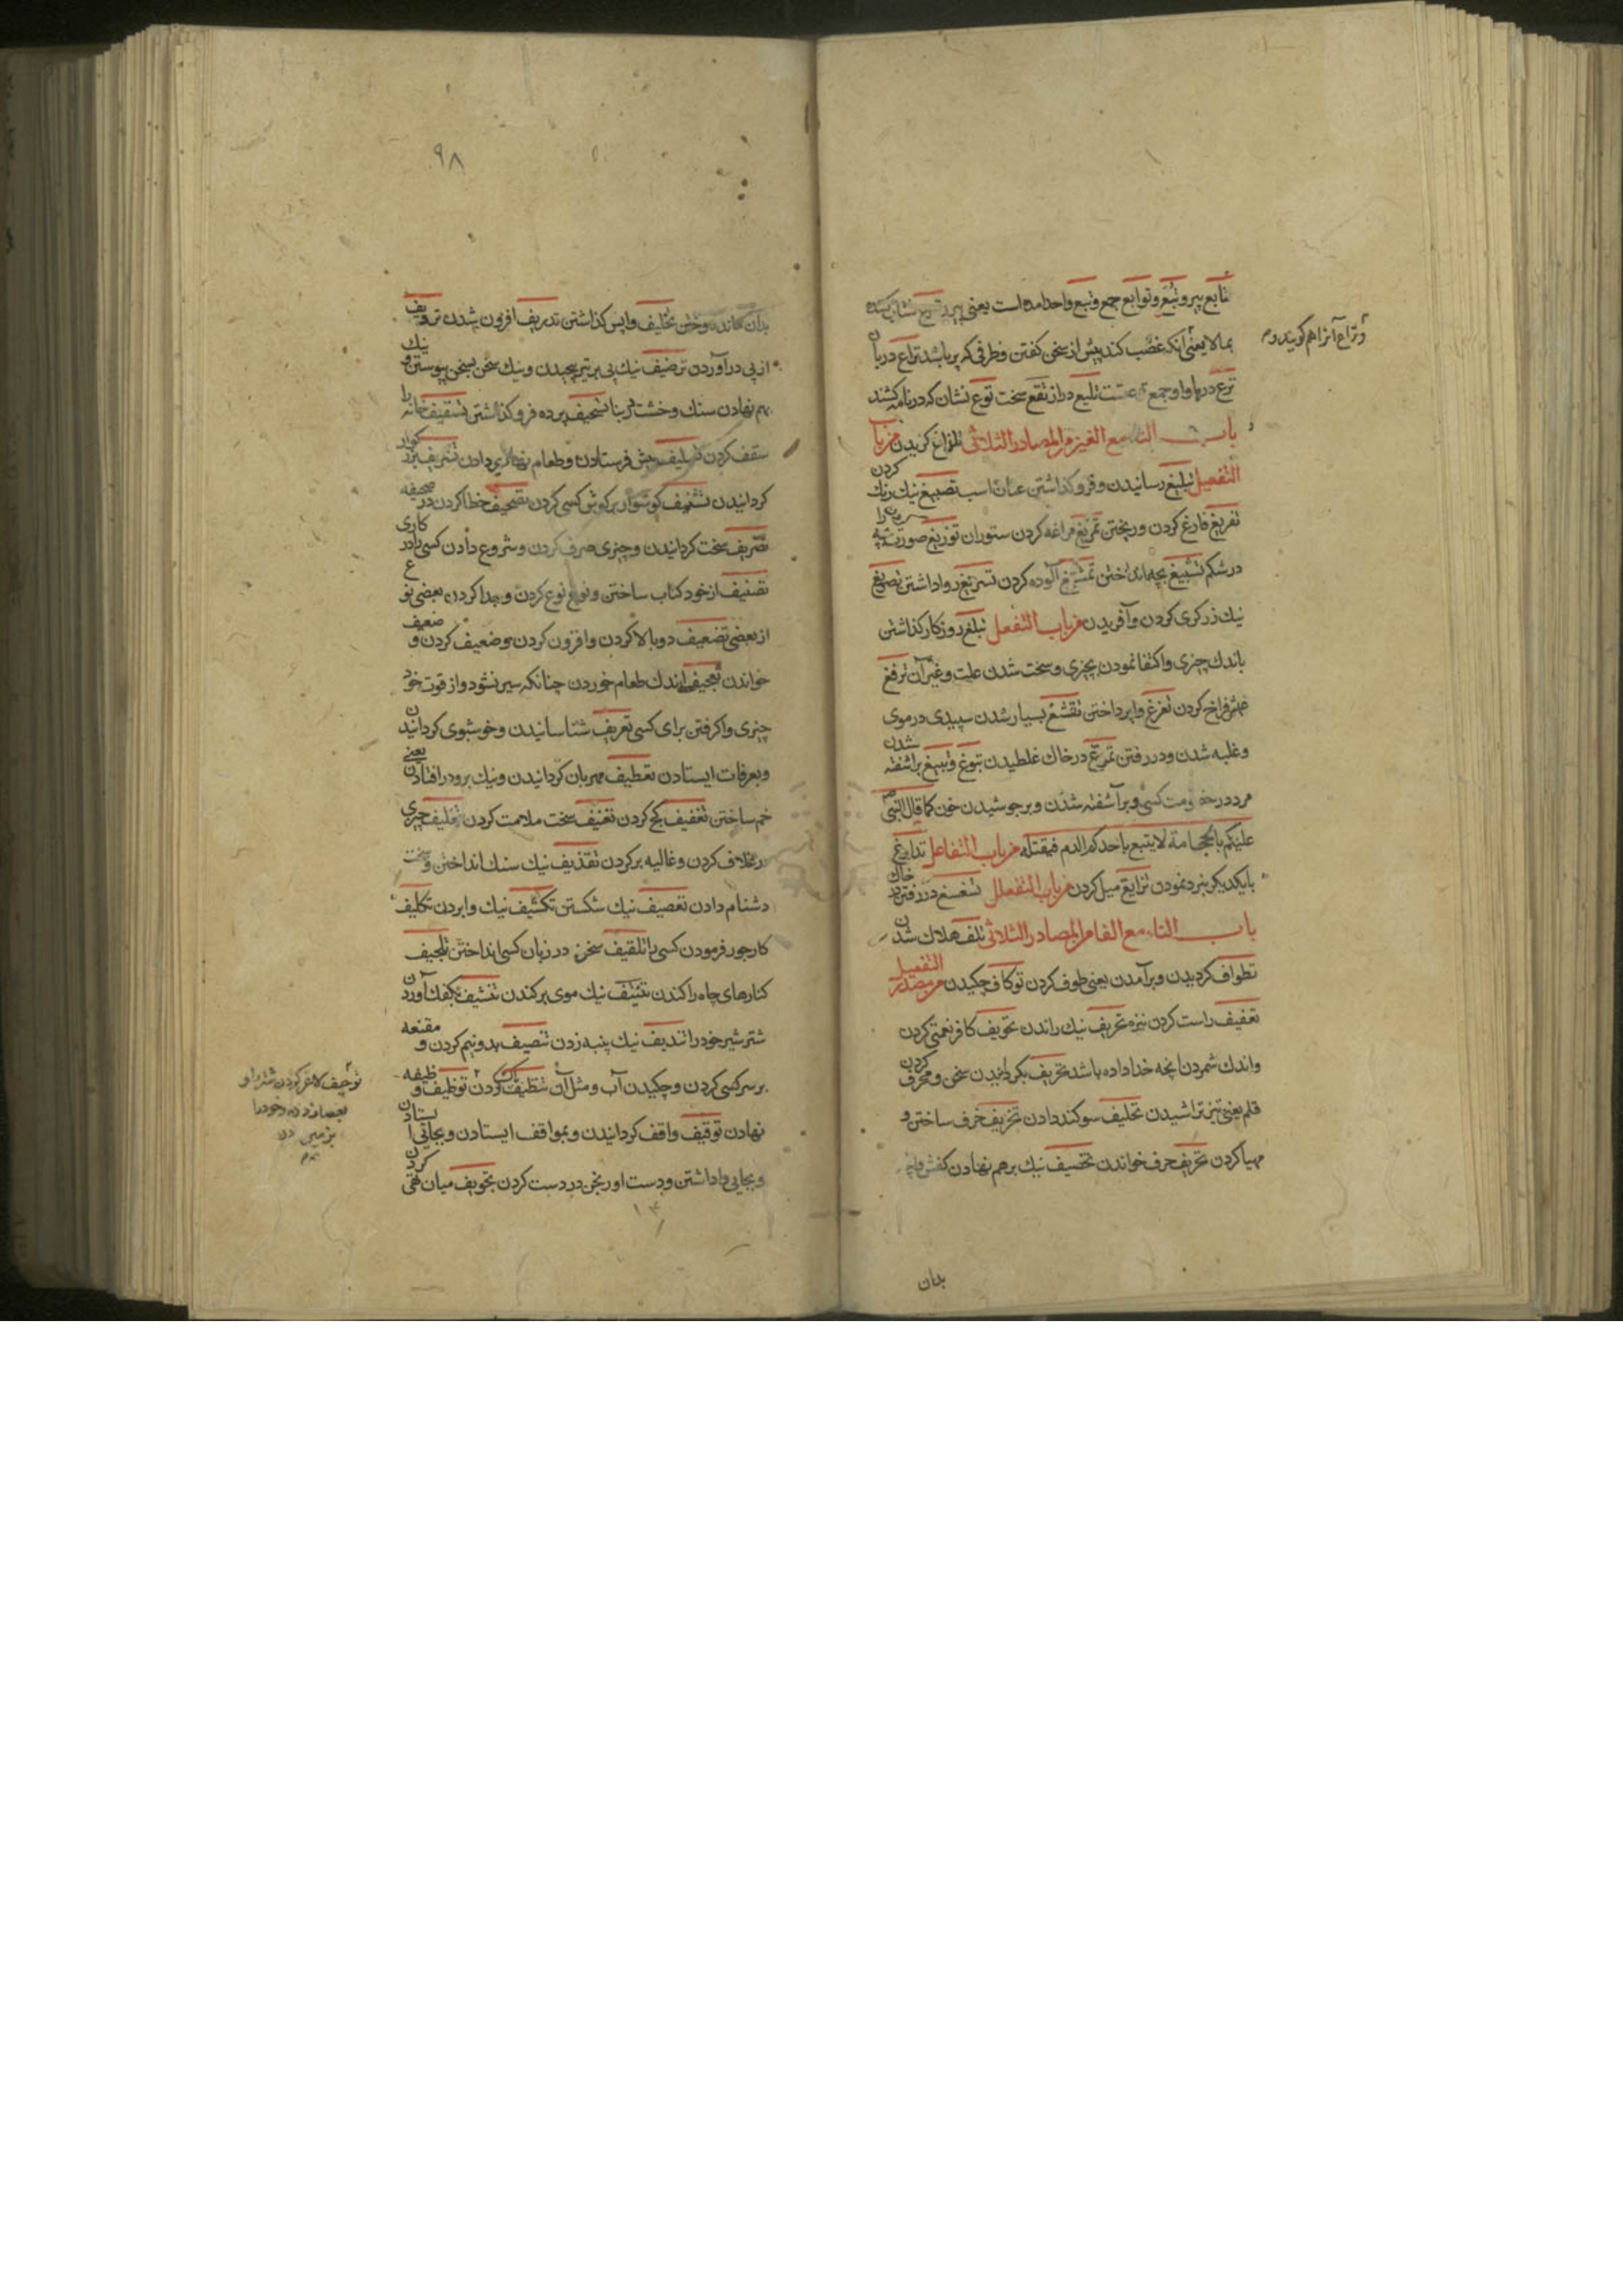 تابع پیرو و تبّع و توابع جمع و تبع واحد امده است یعنی پیرو
بمالا یعنی آنکه غضب کند پیش از سخن کفتن و ظرفی که پر باشد تراع دربان
و تراع آنرا هم کویند
ترع درها و او جمع تلیع دراز تقع سخت توع نشان که در نامه کشند
باب التاء مع الغین من المصادر الثلاثی من باب
التفعیل تبلیغ رسانیدن و فرو کذاشتن عنان اسب تصبیغ نیك رنك کردن
تفریغ فارغ کردن و ریختن تمریغ مراغه کردن ستوران توزیغ صورت
در شکم تسبیغ بچه انداختن تمشیغ آلوده کردن تسریغ روا داشتن تصویغ
نیك زرکری کردن و آفریدن من باب التفعل تبلغ روزکار کذاشتن
باندك چیزی و اکتفا نمودن بچیزی و سخت شدن علت و غیر آن ترفغ
عیش فراخ کردن تفرغ واپرداختن تقشغ بسیار شدن سپیدی در موی
و غلبه شدن و در رفتن تمرغ در خاك غلطیدن تبوغ و تبیغ براشفته شدن
مرد در خصومت کسی و برآشفته شدن و برجوشیدن خون کما قال النبی
علیکم بالحجامة لا یتبیغ باحدکم الدم فیقتله من باب التفاعل
با یکدیکر نبرد نمودن تزایغ میل کردن من باب التفعلل تسغسغ در رفتن در خاك
باب التاء مع الفاء من المصادر الثلاثی تلف هلاك شدن
تطواف کردیدن و برآمدن یعنی طوف کردن توکاف چکیدن من مصدر التفعیل
تثقیف راست کردن نیزه تجریف نیك راندن تجویف کافر نعمتی کردن
و اندك شمردن انچه خدا داده باشد تحریف بکردانیدن سخن و محرف کردن
قلم یعنی تیز تراشیدن تحلیف سوکند دادن تخریف خرف ساختن و
مهیا کردن تحریف حرف خواندن تخصیف نیك برهم نهادن کفش
بدان
٩٨
بدان ماند دوختن تخلیف واپس کذاشتن تدریف افزون شدن
از پی درآوردن ترصیف نیك پی بر تیر پیچیدن و نیك سخن بسخن پیوستن و نیك
بهم نهادن سنك و خشت در بنا تسجیف پرده فرو کذاشتن تسقیف خانه را
سقف کردن تسلیف پیش فرستادن و طعام نهاری دادن تشریف
کردانیدن تشنیف کوشوار در کوش کسی کردن تصحیف خطا کردن در صحیفه
تصریف سخت کردانیدن و چیزی صرف کردن و شروع دادن کسی را در کاری
تصنیف از خود کتاب ساختن و نوع نوع کردن و جدا کردن بعضی نوع
از بعضی تضعیف دوبالا کردن و افزون کردن و ضعیف کردن و ضعیف
خواندن تعجیف اندك طعام خوردن چنانکه سیر نشود و از قوت خود
چیزی واکرفتن برای کسی تعریف شناسانیدن و خوشبوی کردانیدن
و بعرفات ایستادن تعطیف مهربان کردانیدن و نیك برو در افتادن یعنی
خم ساختن تعقیف کج کردن تعنیف سخت ملامت کردن تغلیف چیزی
در غلاف کردن و غالیه بر کردن تقذیف نیك سنك انداختن و سخت
دشنام دادن تقصیف نیك شکستن تکشیف نیك وابردن تکلیف
کار جور فرمودن کسی را تلقیف سخن در زبان کسی انداختن تلجیف
کنارهای چاه را کندن تنتیف نیك موی برکندن تنشیف بکفك آوردن
شتر شیر خود را تندیف نیك پنبه زدن تنصیف بدو نیم کردن و مقنعه
بر سر کسی کردن و چکیدن آب و مثل آن تنظیف پاك کردن توظیف وظیفه
نهادن توقیف واقف کردانیدن و بمواقف ایستادن و بجائی ایستادن
و بجایی واداشتن و دست اورنجن در دست کردن تجویف میان تهی کردن
توجیف لاغر کردن شتر را و
بعصا زدن و خود را
بر زمین زدن